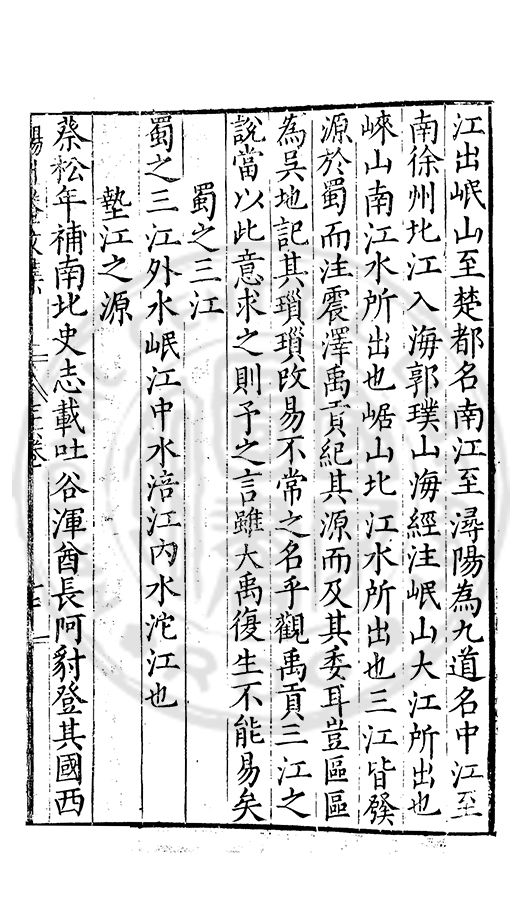 江出岷山至楚都名南江至潯陽為九道名中江至
南徐州北江入海郭璞山海經注岷山大江所出也
崍山南江水所出也崌山北江水所出也三江皆發
源於蜀而注震澤禹貢紀其源而及其委耳豈區區
為吳地記其瑣瑣改易不常之名乎觀禹貢三江之
說當以此意求之則予之言雖大禹復生不能易矣
蜀之三江
蜀之三江外水岷江中水涪江內水沱江也
墊江之源
蔡松年補南北史志載吐谷渾酋長阿豺登其國西